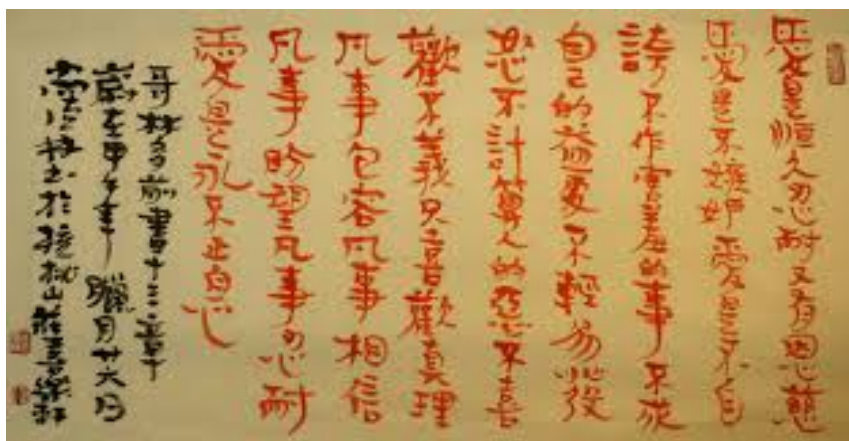 愛是恆久忍耐又有恩慈
愛是不嫉妒愛是不自
誇不作害羞的事不求
自己的益處不輕易發
怒不計算人的惡不喜
歡不義只喜歡真理
凡事包容凡事相信
凡事盼望凡事忍耐
愛是永不止息
哥林多前書十三章
歲在甲午年臘月廿六日
於山莊喜樂軒